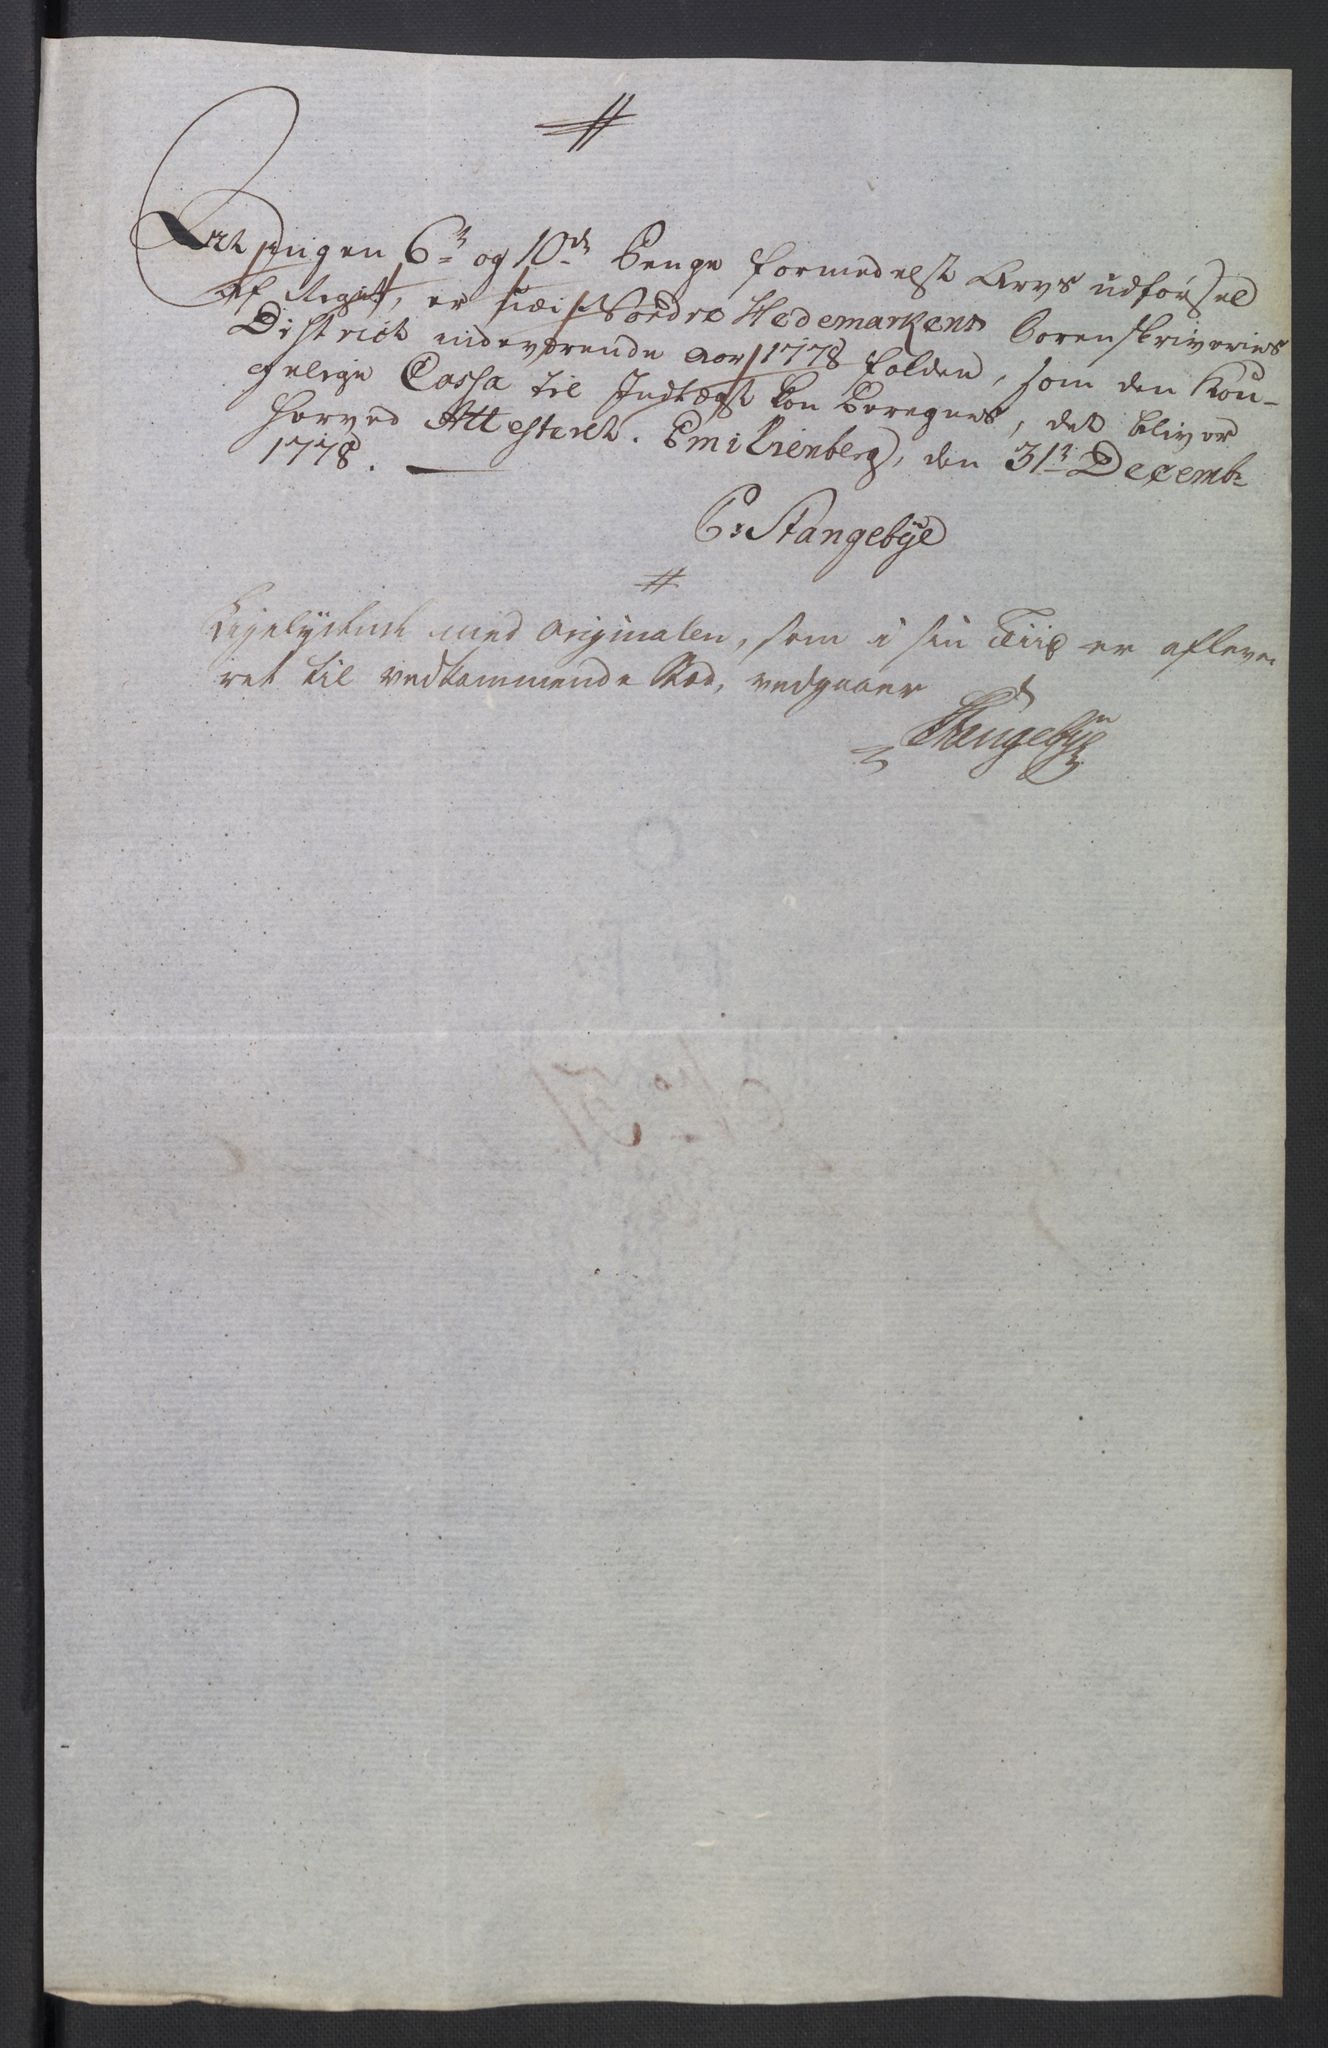 At ingen 6te og 10de Penge formedelst Arvs udförsel
af Riget, er her i Söndre Hedemarkens Sorenskriveries
District indeværende Aar 1778 falden, som den Kon-
gelige Cassa til Indtægt kan beregnes, det bliver
herved Attesteret. Emilienberg, den 31te Decembr
1778.
P: Stangebye
Ligelydende med Originalen, som i sin Tiid er afleve-
ret til vedkommende Stæd, vedgaaer
Stangebye